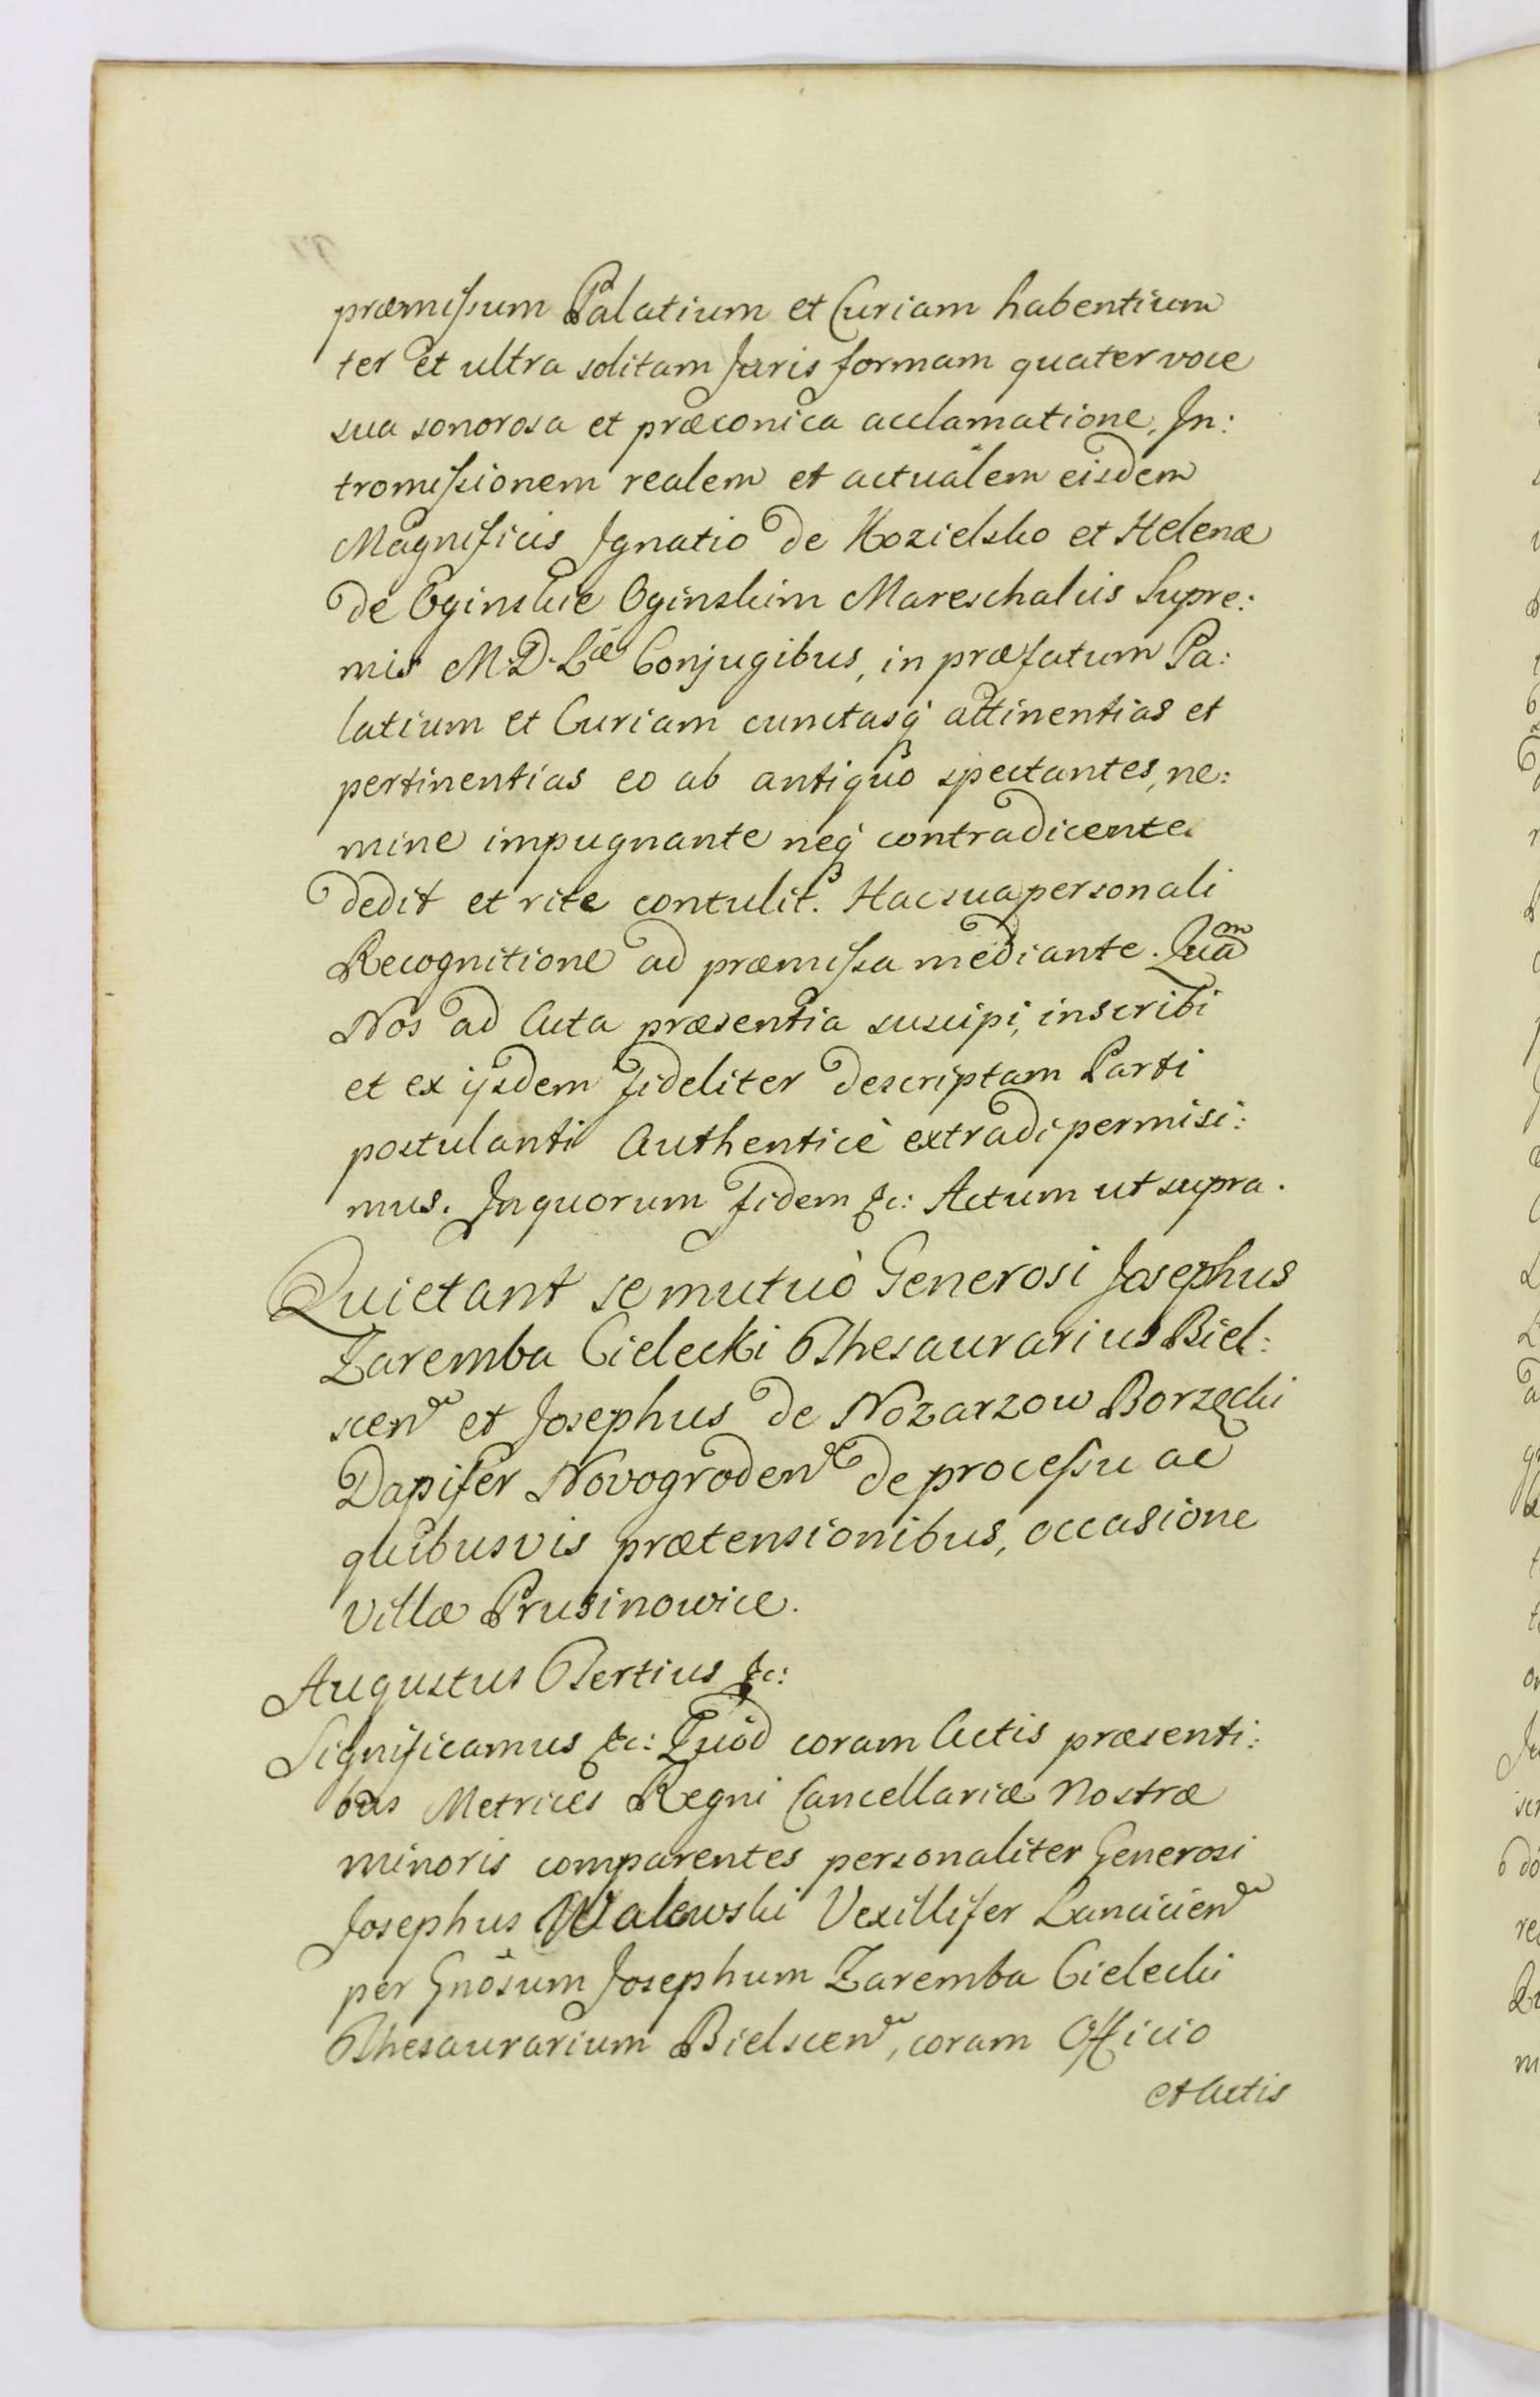 præmissum Palatium et Curiam habentium
ter et ultra solitam Juris formam quater voce
sua sonorosa et præconica acclamatione, In:
tromissionem realem et actualem eisdem
Magnificis Ignatio de Kozielsko et Helenæ
de Oginskie Oginskim Mareschalcis Supre:
mis M. D. Lææ Conjugibus, in præfatum Pa:
latium et Curiam cunctasq́ attinentias et
pertinentias eo ab antiquo spectantes, ne:
mine impugnante neq́ contradicente
dedit et rite contulit. Hac sua personali
Recognitione ad præmissa mediante. Quam
Nos ad Acta præsentia suscipi, inscribi
et ex ijsdem fideliter descriptam Parti
postulanti Authenticè extradi permisi:
mus. In quorum fidem &c: Actum ut supra.
Quietant se mutuò Generosi Josephus
Zaremba Cielecki Thesaurarius Biel:
scen et Josephus de Nozarzow Borzęcki
Dapifer Novogroden de processu ac
quibusvis prætensionibus, occasione
Villæ Prusinowice.
Augustus Tertius &c:
Significamus &c: Quod coram Actis præsenti:
bus Metrices Regni Cancellariæ Nostræ
minoris comparentes personaliter Generosi
Josephus Walewski Vexillifer Lancicien
per Gnōsum Josephum Zaremba Cielecki
Thesaurarium Bielscen, coram Officio
et Actis